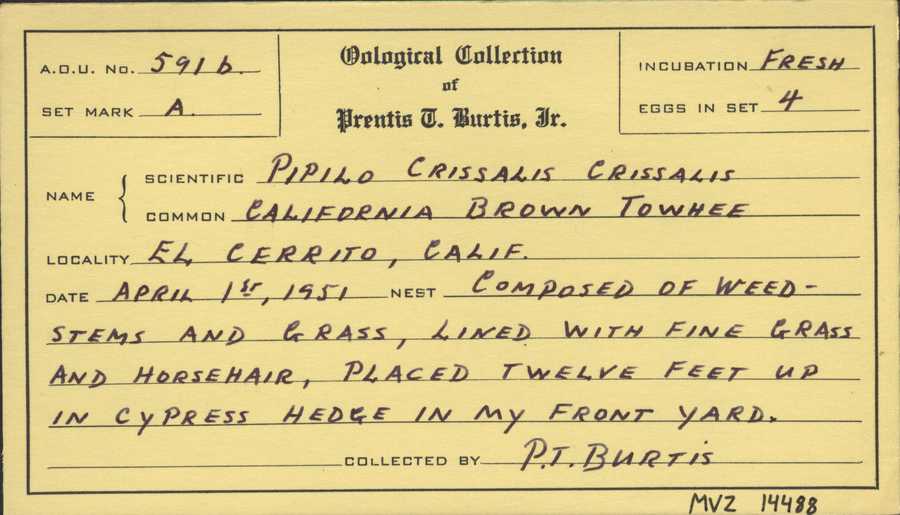 A.O.U. No. 591b.
SET MARK A.
Oological Collection
of
Prentis T. Burtis, Jr.
INCUBATION FRESH
EGGS IN SET 4
NAME { SCIENTIFIC PIPILO CRISSALIS CRISSALIS
COMMON CALIFORNIA BROWN TOWHEE
LOCALITY EL CERRITO, CALIF.
DATE APRIL 1st, 1951 NEST COMPOSED OF WEED-
STEMS AND GRASS, LINED WITH FINE GRASS
AND HORSEHAIR, PLACED TWELVE FEET UP
IN CYPRESS HEDGE IN MY FRONT YARD.
COLLECTED BY P.T. BURTIS
MVZ 14488